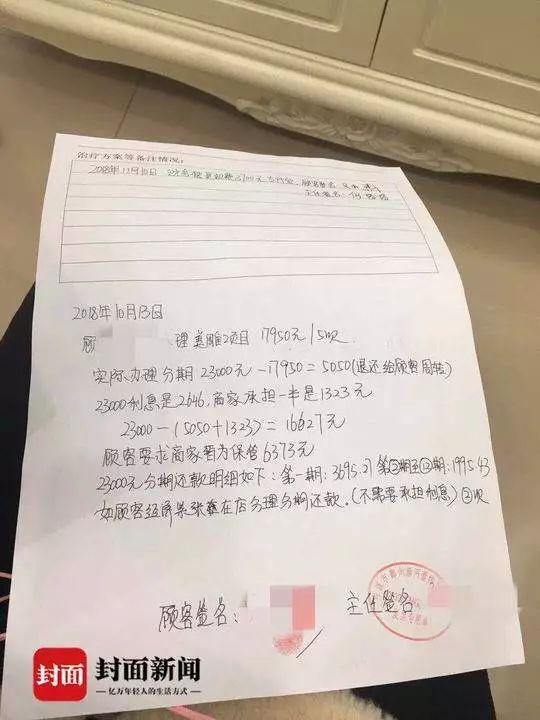 治疗方案等备注情况:
2018年11月10日
主任签名:何
2018年10月13日
顾 理美雕2项目 17950元/5次
实际办理分期23000元-17950=5050(退还给顾客周转)
23000利息是2646,商家承担一半是1323元
23000-(5050+1323)=16627元
顾客要求商家暂为保管6373元
23000元分期还款明细如下:第一期:3695.27 第②期至⑫期:1995.43
如顾客 在店办理分期还款.(不需要承担利息)②次
顾客签名: 主任签名
封面 封面新闻
亿万年轻人的生活方式